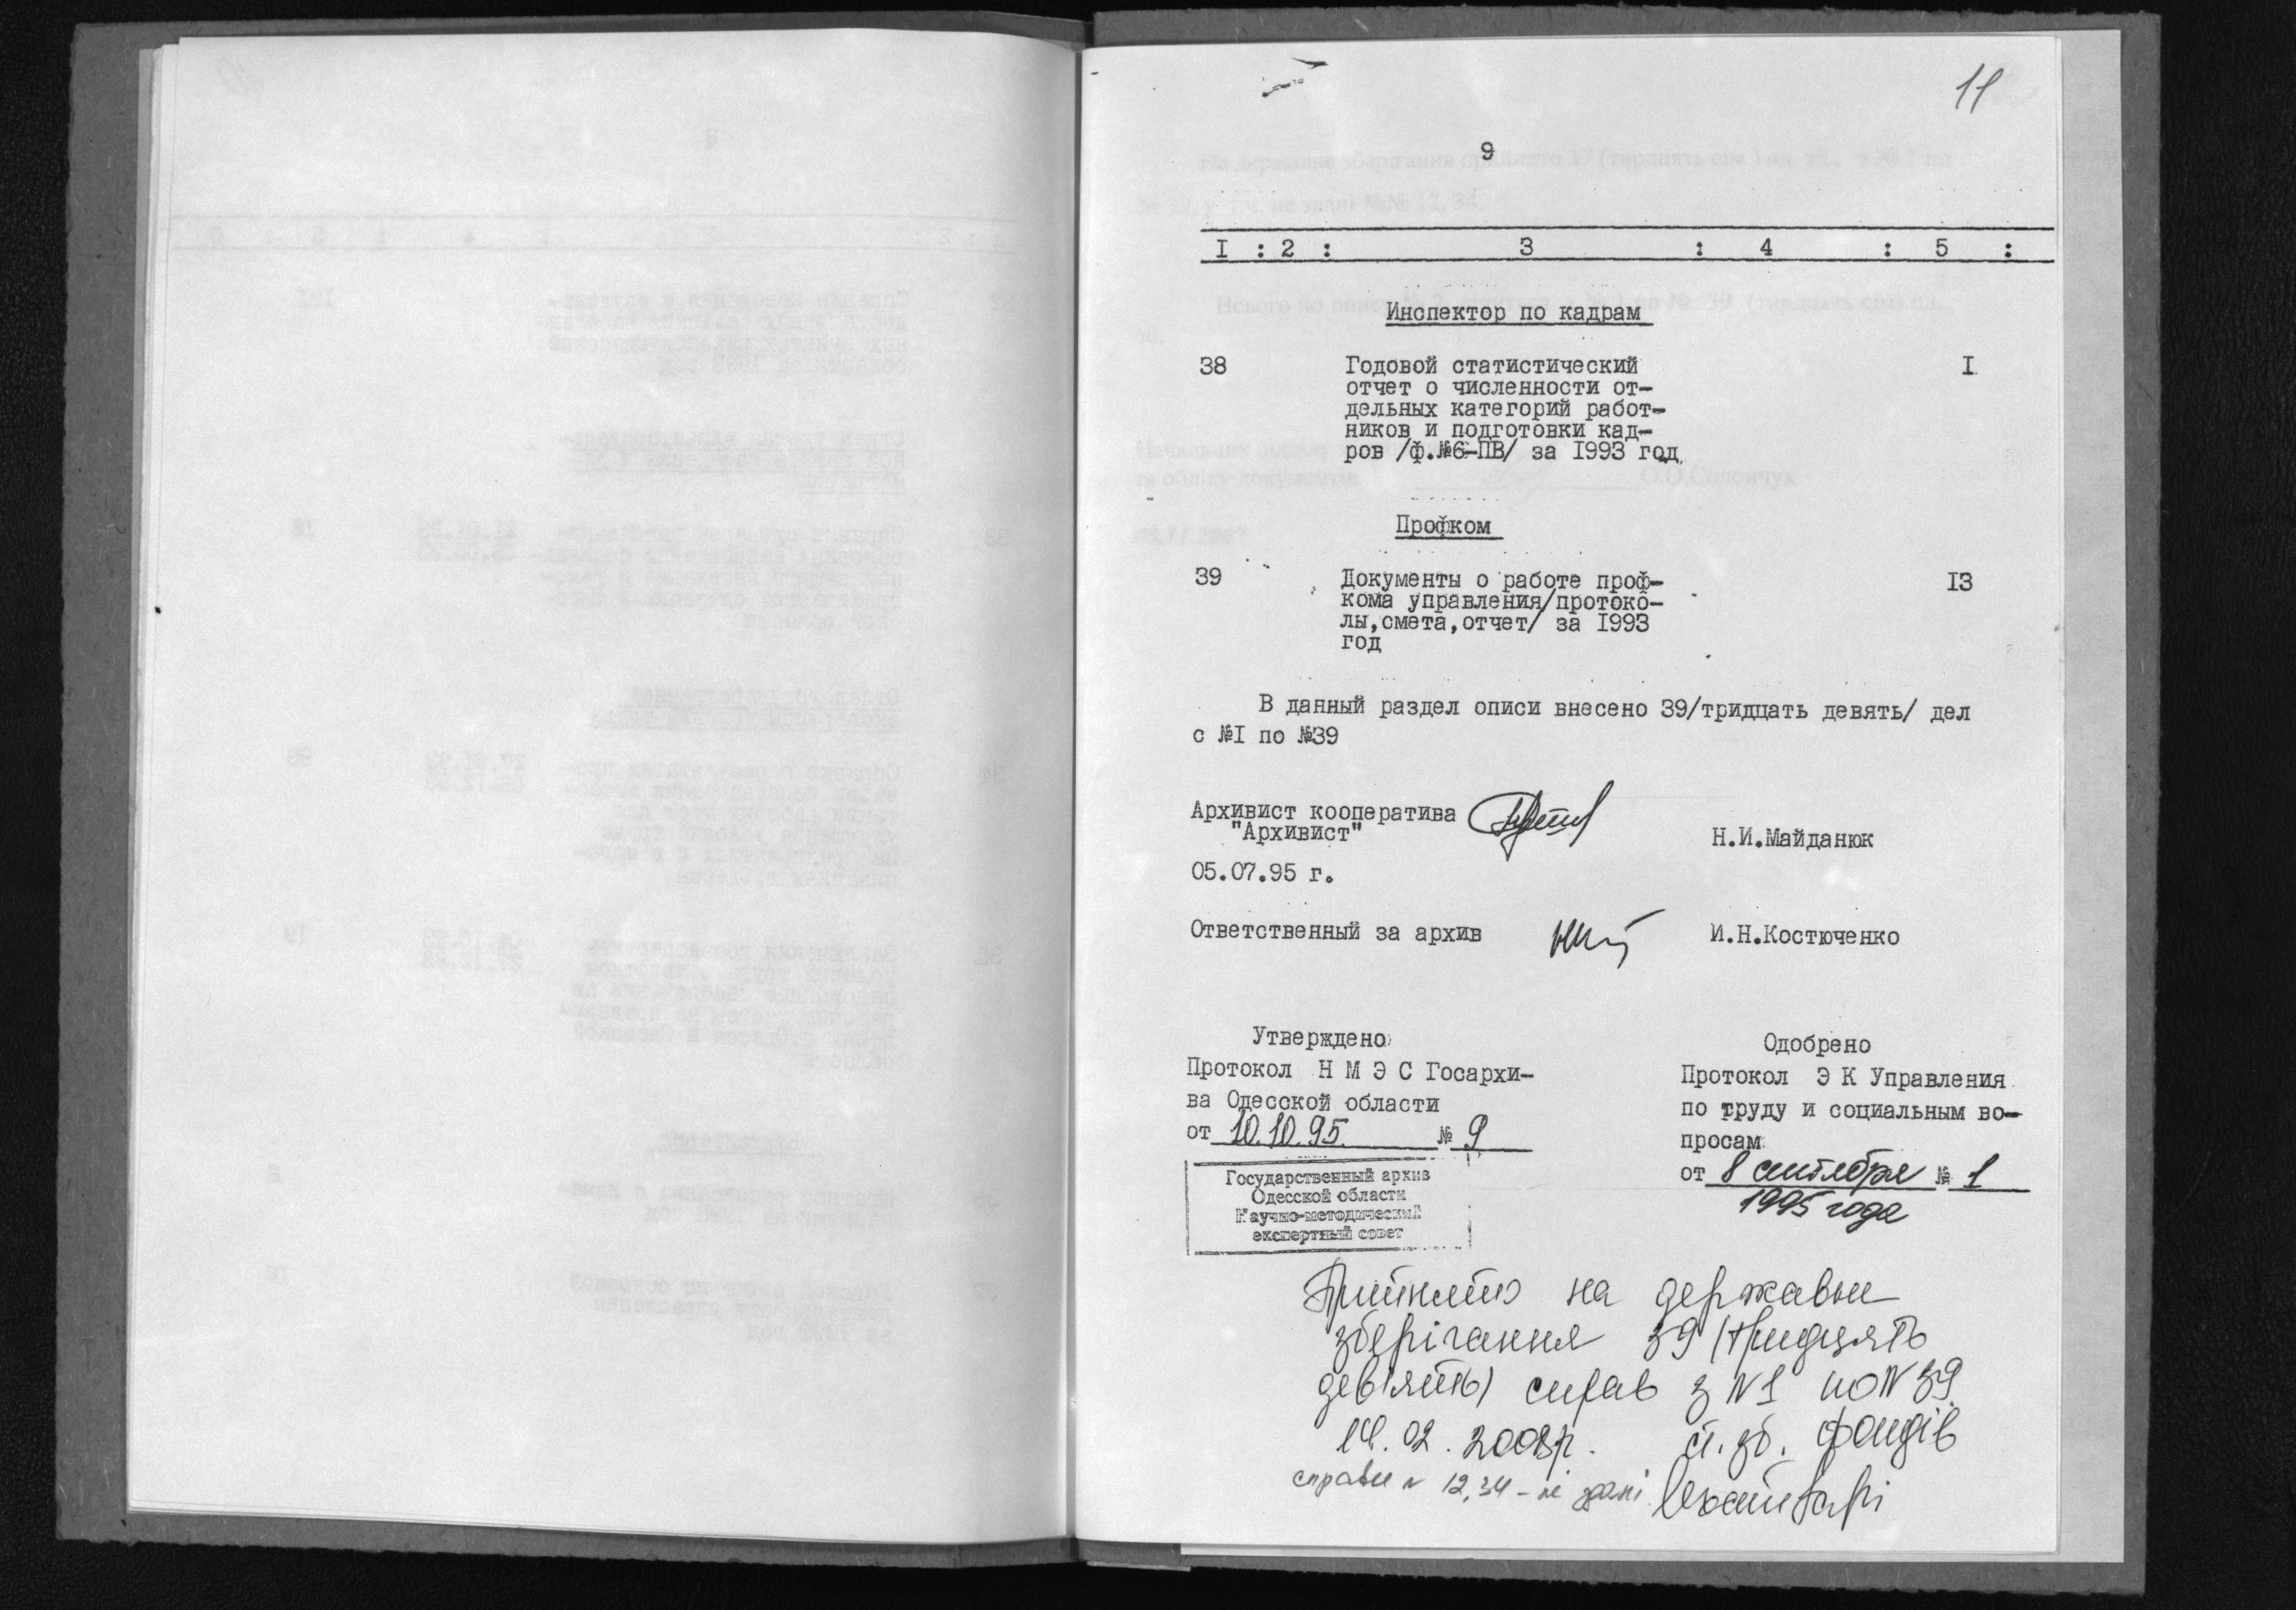 11
9
I : 2 : 3 : 4 : 5 :
Инспектор по кадрам
38 Годовой статистический I
отчет о численности от-
дельных категорий работ-
ников и подготовки кад-
ров /ф.№6-ПВ/ за 1993 год
Профком
39 Документы о работе проф- I3
кома управления/протоко-
лы,смета,отчет/ за 1993
год
В данный раздел описи внесено 39/тридцать девять/ дел
с №I по №39
Архивист кооператива
"Архивист"
Н.И.Майданюк
05.07.95 г.
Ответственный за архив И.Н.Костюченко
Утверждено
Протокол Н М Э С Госархи-
ва Одесской области
от 10.10.95 № 9
Государственный архив
Одесской области
Научно-методический
экспертный совет
Одобрено
Протокол Э К Управления
по труду и социальным во-
просам
от 8 сентября № 1
1995 года
Прийнято на державне
зберігання 39 (тридцять
дев'ять) справ з N1 по N39
02. р. фондів
справи N 12,34 - не здані